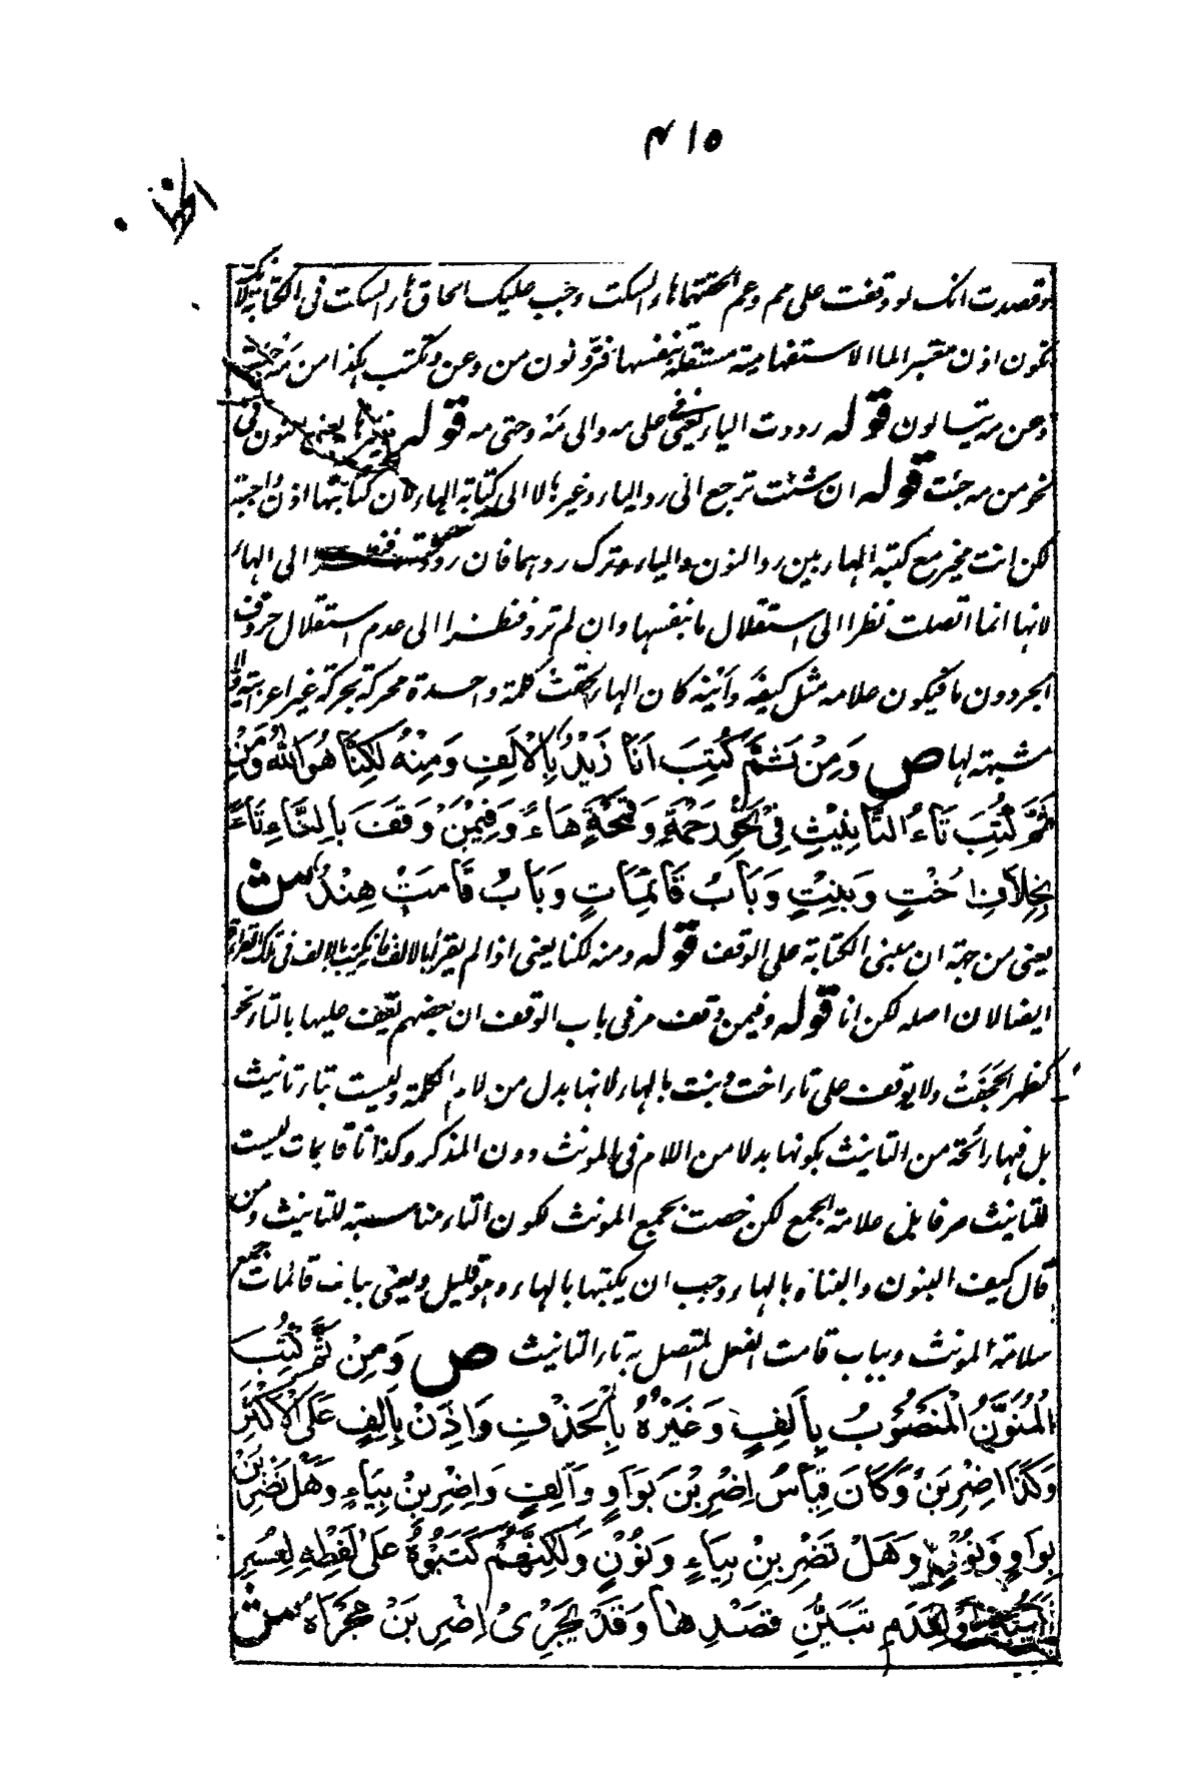 ٤١٥
الخط
لو قصدت انك لو وقفت على مم وعم الحقتها هاء السكت وجب عليك الحاق هاء السكت في الكتابة لئلا
تكون اذن معتبرا لما الاستفهامية مستقلة بنفسها فتردّ نون من وعن وتكتب هكذا من مه جئت
وعن مه يتسالون قوله رددت الياء يعني في على مه والى مه وحتى مه قوله وغيرها يعني نون في
نحو من مه جئت قوله ان شئت ترجع الى رد الياء وغيرها لا الى كتابة الهاء لان كتابتها اذن واجبة
لكن انت مخير مع كتبة الهاء بين رد النون والياء وترك ردهما فان رددت فنظرا الى الهاء
لانها انما اتصلت نظرا الى استقلال ما بنفسها وان لم ترد فنظرا الى عدم استقلال حروف
الجر دون ما فيكون علامه مثل كيفه واينه كان الهاء لحقت كلمة واحدة محركة بحركة غير اعرابية ولا
مشبهة لها ص وَمِنْ ثَمَّ كُتِبَ اَنَا زَيْدٌ بِالْاَلِفِ وَمِنْهُ لٰكِنَّا هُوَ اللّٰهُ وَمِنْ
ثَمَّ كُتِبَ تَاءُ التَّانِيْثِ فِيْ نَحْوِ رَحْمَةٍ وَقَمْحَةٍ هَاءً وَفِيْمَنْ وَقَفَ بِالتَّاءِ تَاءً
بِخِلَافِ اُخْتٍ وَبِنْتٍ وَبَابُ قَائِمَاتٍ وَبَابُ قَامَتْ هِنْدٌ ش
يعنى من جهة ان مبنى الكتابة على الوقف قوله ومنه لكنا يعنى اذا لم يقرأ بالالف فانه يكتب بالالف في تلك القراءة
ايضا لان اصله لكن انا قوله وفيمن وقف مر في باب الوقف ان بعضهم يقف عليها بالتاء نحو
كظهر الحجفت ولا يوقف على تاء اخت وبنت بالهاء لانها بدل من لام الكلمة وليست بتاء تانيث
بل فيها رائحة من التانيث بكونها بدلا من اللام في المونث دون المذكر وكذا تا قائمات ليست
للتانيث صرفا بل علامة الجمع لكن خصت بجمع المونث لكون التاء مناسبة للتانيث ومن
قال كيف البنون والبناه بالهاء وجب ان يكتبها بالهاء وهو قليل ويعنى بباب قائمات جمع
سلامة المونث وبباب قامت الفعل المتصل به تاء التانيث ص وَمِنْ ثَمَّ كُتِبَ
الْمُنَوَّنُ الْمَنْصُوْبُ بِاَلِفٍ وَغَيْرُهُ بِالْحَذْفِ وَاِذَنْ بِاَلِفٍ عَلَى الْاَكْثَرِ
وَكَذَا اضْرِبَنْ وَكَانَ قِيَاسُ اِضْرِبُنْ بِوَاوٍ وَاَلِفٍ وَاِضْرِبِنْ بِيَاءٍ وَهَلْ تَضْرِبُنْ
بِوَاوٍ وَنُوْنٍ وَهَلْ تَضْرِبِنْ بِيَاءٍ وَنُوْنٍ وَلٰكِنَّهُمْ كَتَبُوْهُ عَلٰى لَفْظِهٖ لِعُسْرِ
تَبَيُّنِهٖ اَوْ لِعَدَمِ تَبَيُّنِ قَصْدِهَا وَقَدْ يُجْرٰى اِضْرِبَنْ مُجْرَاهُ ش